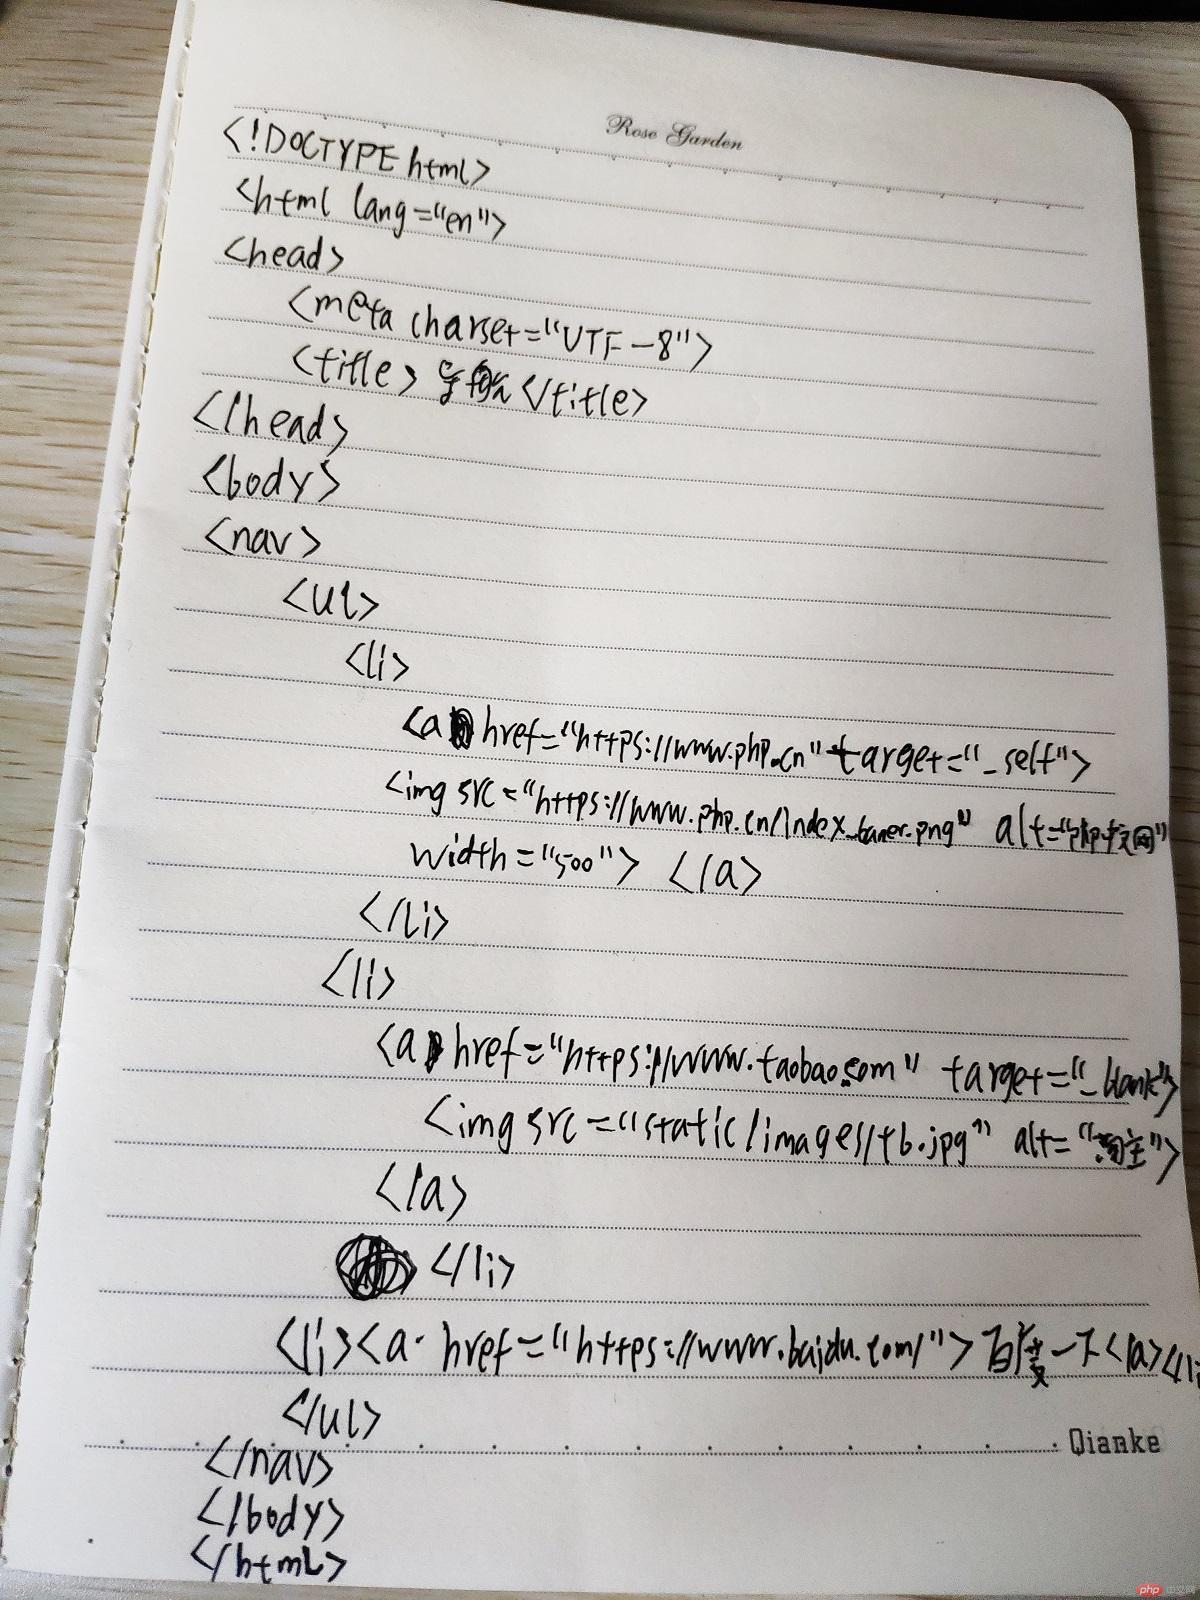 Rose Garden
<!DOCTYPE html>
<html lang="en">
<head>
<meta charset="UTF-8">
<title> </title>
</head>
<body>
<nav>
<ul>
<li>
<a href="https://www.php.cn" target="_self">
<img src="https://www.php.cn/index_baner.png" alt="php中文网"
width="500"> </a>
</li>
<li>
<a href="https://www.taobao.com" target="_blank">
<img src="static/images/tb.jpg" alt="淘宝">
</a>
</li>
<li><a href="https://www.baidu.com/">百度一下</a></li
</ul>
Qianke
</nav>
</body>
</html>
php 中文网